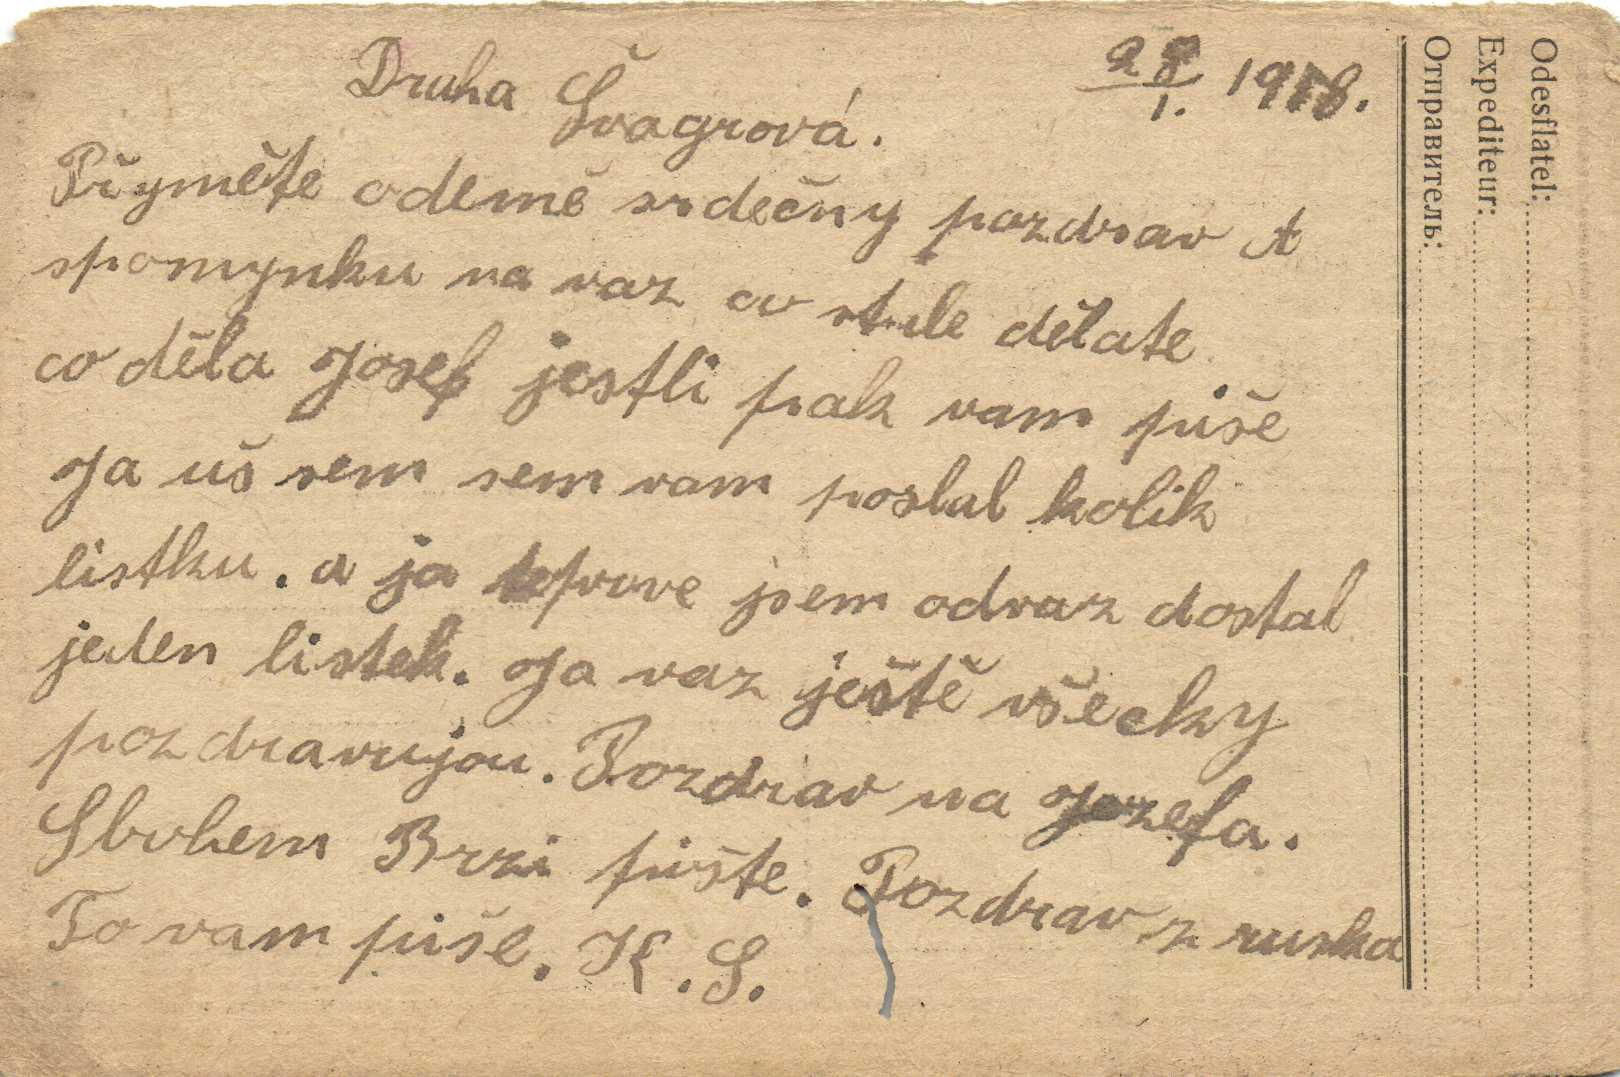 28/1. 1918.
Draha Švagrová.
Přyměte odemě srdečny pozdrav A
spomynku na vaz co stule dělate
co děla Josef jestli pak vam piše
Ja uš sem sem vam poslal kolik
listku. a ja teprove jsem odvaz dostal
jeden listek. Ja vaz ještě všecky
pozdravujou. Pozdrav na Jozefa.
Sbohem Brzi pište. Pozdrav z ruska
To vam piše. K. S.
Odesílatel:
Expediteur:
Отправитель: